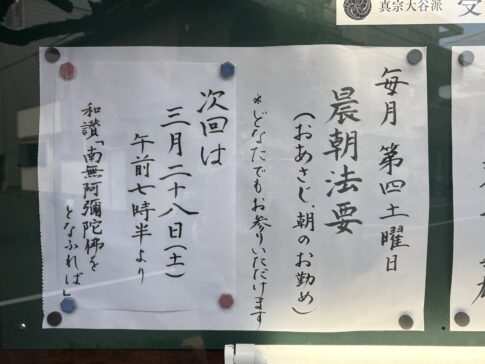 真宗大谷派
毎月 第四土曜日
晨朝法要
(おあさじ、朝のお勤め)
*どなたでもお参りいただけます
次回は
三月二十八日(土)
午前七時半より
和讃「南無阿彌陀佛を
となふれば」